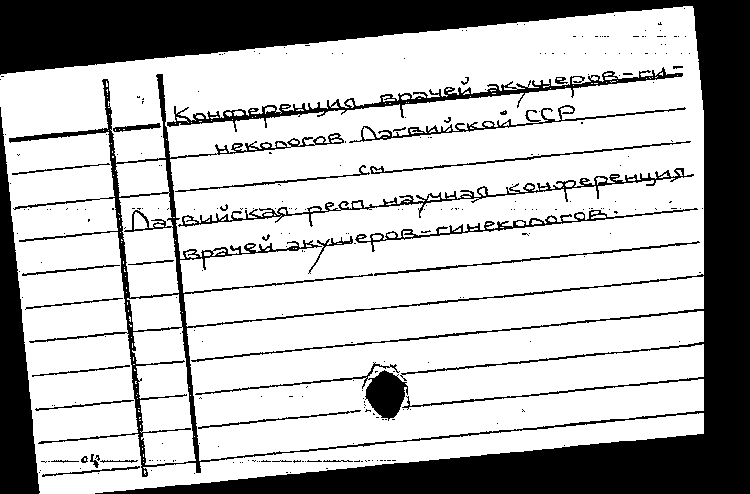 Конференция врачей акушеров-ги-
некологов Латвийской ССР
см
Латвийская респ. научная конференция
врачей акушеров-гинекологов.